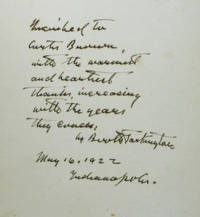 Inscribed to
Curtis Brown,
with the warmest
and heartiest
thanks, increasing
with the years
they
by Booth Tarkington
May 16, 1922
Indianapolis.